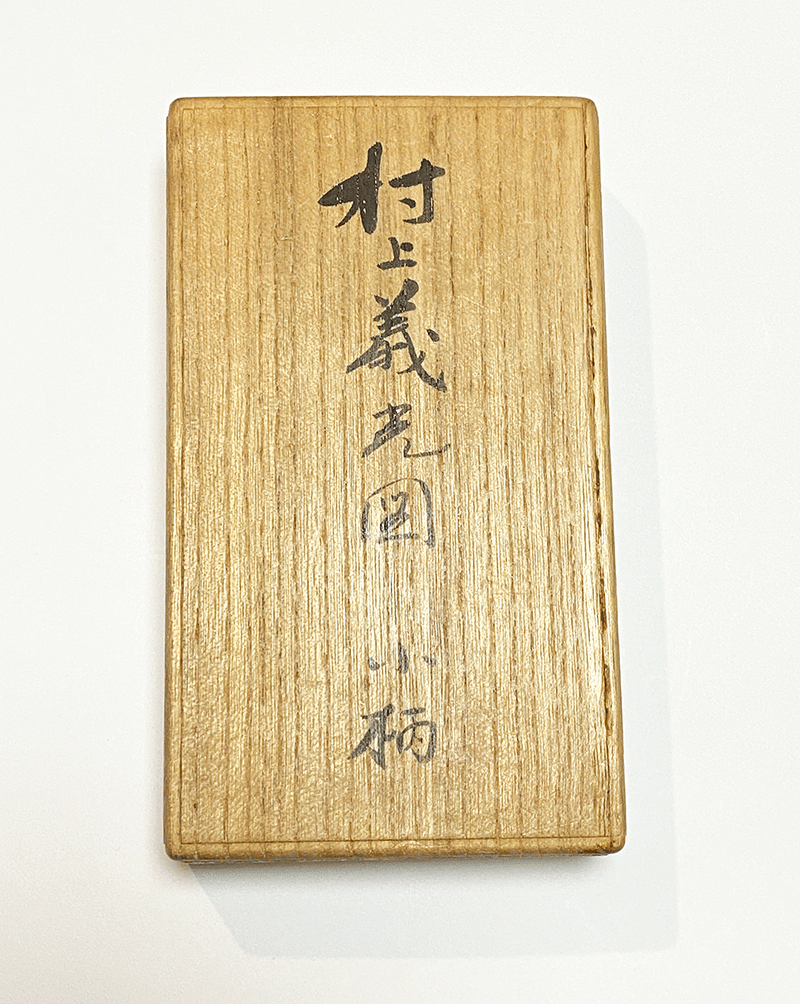 村上義光圖 小柄